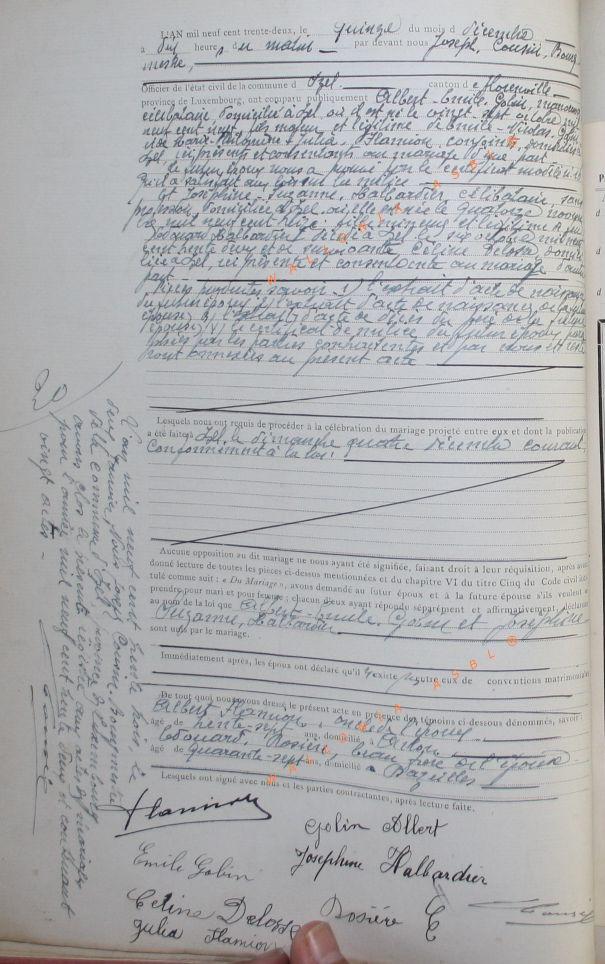 L'AN mil neuf cent trente-deux, le quinze du mois d décembre
à dix heures du matin par devant nous Joseph, Cousin, Bourg
mestre,
Officier de l'état civil de la commune d Izel canton de Florenville
province de Luxembourg, ont comparu publiquement Albert-Emile, Gobin,
célibataire domicilié à Izel où il est né le vingt sept octobre mil
neuf cent huit, fils majeur et légitime de Emile-Nicolas, Gobin
et Julia, Hamion, conjoints, domiciliés à
Izel, ici présents et consentants au mariage d'une part
Et Joséphine, Suzanne, Halbardier, célibataire, sans
profession, domiciliée à Izel, où elle est née le quatorze
mil neuf cent treize, fille mineure et légitime de
Edouard, Halbardier décédé à Izel le six octobre mil neuf
cent trente deux et de survivante Céline Delosse domi
ciliée à Izel, ici présente et consentante au mariage d'autre
part
savoir 1) l'extrait d'acte de naissance
du futur époux 2) l'extrait d'acte de naissance de la future
épouse 3) l'extrait d'acte de décès du père de la future
épouse 4) le certificat de milice du futur époux
par les parties contractantes et par nous
sont annexées au présent acte
Lesquels nous ont requis de procéder à la célébration du mariage projeté entre eux et dont la publication
a été faite à Izel, le dimanche quatre décembre courant,
Conformément à la loi.
Aucune opposition au dit mariage ne nous ayant été signifiée, faisant droit à leur réquisition, après avoir
donné lecture de toutes les pièces ci-dessus mentionnées et du chapitre VI du titre Cinq du Code civil inti-
tulé comme suit : « Du Mariage », avons demandé au futur époux et à la future épouse s'ils veulent se
prendre pour mari et pour femme ; chacun d'eux ayant répondu séparément et affirmativement, déclarons
au nom de la loi que Albert-Emile, Gobin et Joséphine
Suzanne, Halbardier
sont unis par le mariage.
Immédiatement après, les époux ont déclaré qu'il n'existe pas entre eux de conventions matrimoniales
De tout quoi nous avons dressé le présent acte en présence des témoins ci-dessous dénommés, savoir :
Albert Hamion, oncle de l'époux
âgé de trente-six ans, domicilié à
Edouard, Rosière, beau frère de l'épouse
âgé de quarante-sept ans, domicilié à Bazeilles
Lesquels ont signé avec nous et les parties contractantes, après lecture faite.
Hamion
Gobin Albert
Emile Gobin
Joséphine Halbardier
Celine Delosse
Rosière E
Cousin
Julia Hamion
L'an mil neuf cent trente trois le
janvier, Nous Joseph Cousin Bourgmestre
de la commune d'Izel, province de Luxembourg
avons clos le présent registre aux actes de mariages
pour l'année mil neuf cent trente deux et contenant
vingt actes.
Cousin
WALLONIA ASBL ®
WALLONIA ASBL ®